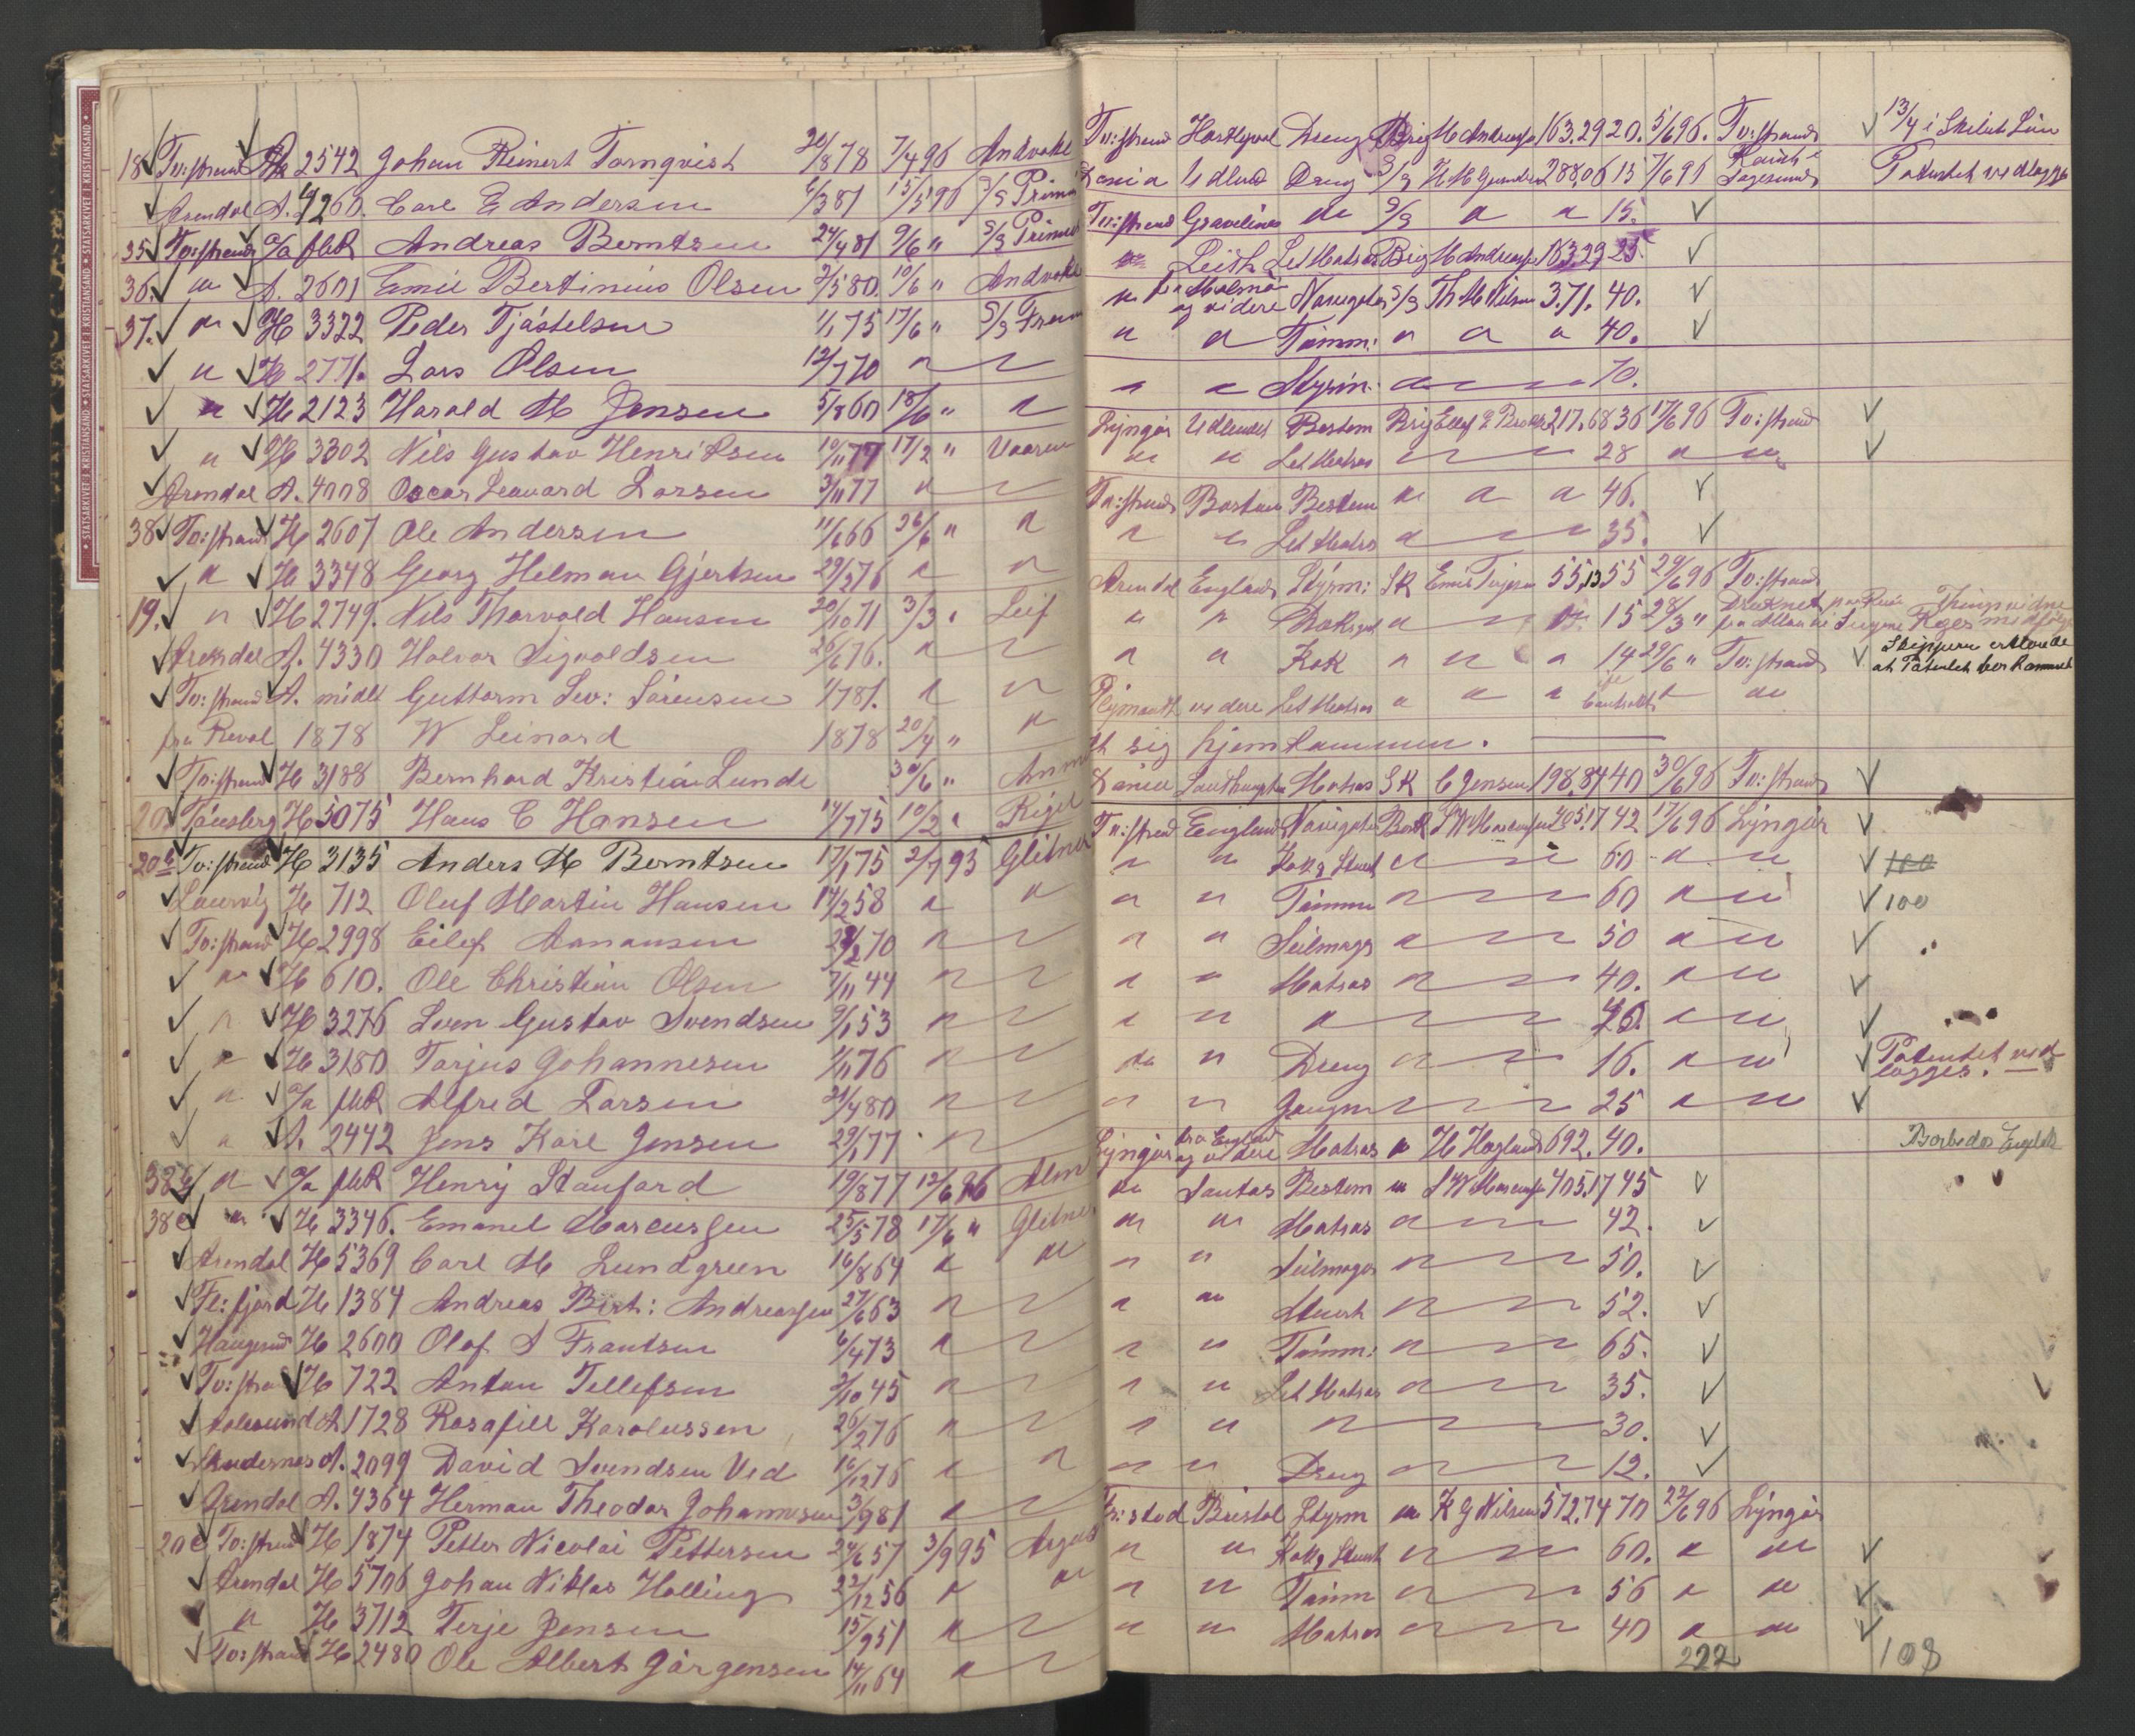 18 Tv:strand A 2542 Johan Reinert Tørnqvist 20/8 78 7/4 96 Andvake
Arendal A. 4260. Carl E Andersen 6/3 81 13/5 96 S/S Primu
35 Tv:strand a/a pkt Andreas Berntsen 24/4 81 9/6 " S/S Primus
36. " A. 2601 Emil Bertinius Olsen 3/5 80. 10/6 " Andvake
37. " H 3322 Peder Tjøstelsen 1/1 75 17/6 " S/S Fram
" H 2771. Lars Olsen 12/7 70 " "
" H 2123 Harald M Jensen 5/8 60 18/6 " "
" H 3302 Nils Gustav Henriksen 10/11 77 17/2 " Vaaren
Arendal A. 4008 Oscar Leonard Larsen 3/11 77 " "
38 Tv:strand H 2607 Ole Andersen 11/6 66 26/6 " "
" H 3348 Georg Helman Gjertsen 29/2 76 " "
19. " H 2749. Nils Thorvald Hansen 20/10 71 3/3 " Leif
Arendal A. 4330 Halvor Sigvaldsen 26/6 76. " "
Tv:strand A. midlt Guttorm Sev: Sørensen 1/7 81. " "
fra Reval 1878 W Leinard 1878 20/4 " "
Tv:strand H 3188 Bernhard Kristian Lunde 30/6 "
20 Tønsberg H 5075 Hans C Hansen 14/7 75 10/2 " Rigel
20 b Tv:strand H 3135 Anders M Berntsen 17/1 75 2/7 95 Glitner
Laurvig H 712 Oluf Martin Hansen 14/2 58 " "
Tv:strand H 2998 Eilef Aanansen 28/2 70 " "
" H 610. Ole Christian Olsen 7/11 44 " "
" H 3276 Sven Gustav Svendsen 9/1 53 " "
" H 3180 Torjus Johannesen 1/1 76 " "
" a/a pkt Alfred Larsen 21/4 80 " "
" A. 2442 Jens Karl Jensen 29/1 77 " "
38 b " a/a pkt Henry Stanford 19/8 77 12/6 96
38 c " H 3346. Emanel Marcussen 25/5 78 17/6 " Glitner
Arendal H 5369 Carl M Lundgreen 16/8 64 " "
Fl:fjord H 1384 Andreas Birt: Andreassen 27/6 63 " "
Haugesund H 2600 Olaf A Frantsen 6/4 73 " "
Tv:strand H 722 Anton Tellefsen 3/10 45 " "
Aalesund A 1728 Rosafill Karolussen 26/2 76 " "
Skudernes A. 2099 David Svendsen Ved 16/12 76 " "
Arendal A. 4364 Herman Theodor Johannesen 3/9 81 " "
20 c Tv:strand H 1874 Petter Nicolai Pettersen 24/6 57 3/9 95 Argus
Arendal H 5706 Johan Niklas Halling 22/12 56 " "
" H 3712 Terje Jensen 15/9 51 " "
Tv:strand H 2480 Ole Albert Jørgensen 14/11 64 " "
Tv:strand Hartlepool Dreng Brig M Andreasen 163.29 20. 5/6 96. Tv:strand 13/4 i
Dania Udland Dreng S/S 288.06 15 7/6 91 Patentet vedlægges
Tv:strand Gravelines do S/S " " 15.
" Leith Let Matros Brig M Andreasen 163.29 25.
" fra Malmø og videre Navigatør S/S Th M Nilsen 371. 40.
" " Tømm: " " " 40.
" " Styrm: " 70.
Lyngør Udlandet Bestm Brig Ellef 217.68 36 17/6 96 Tv:strand
" " Let Matros " 28 " "
Tv:strand Bestm " " " 46.
" " Let Matros " 35.
Arendal England Styrm: SK 55,13 55 29/6 96 Tv:strand
" " " 15 28/3 " Druknet
" " Kok " " " 14 29/6 " Tv:strand Skipperen erklærede at Patentet
Plymouth videre Let Matros " " " "
sig hjemkommen.
Matros SK C Jensen 198,84 40 30/6 96 Tv:strand
Tv:strand England Navigatør Bark S W Marcussen 405.17 42 17/6 96 Lyngør
" " Kok & Stuert " 60 " " 100
" " Tømm " 60 " " 100
" " Seilmager " 50 " "
" " Matros " 40. " "
" " " " "
" " Dreng " 16. " " Patentet vedlægges.
" " Jungm " 25 " "
Lyngør fra England og videre Matros " H Hagland 692. 40. Barbados
" Santos Bestm " S W Marcussen 405.17 45
" " Matros " 42.
" " Seilmager " 50.
" " Stuert " 52.
" " Tømm: " 65.
" " Let Matros " 35.
" " " 30.
" " Dreng " 12.
Fr:stad Bristol Styrm " K G Nilsen 572.74 70 22/6 96 Lyngør
" " Kok & Stuert " 60. " "
" " Tømm " 56 " "
" " Matros " 40 " "
222 108
STATSARKIVET I KRISTIANSAND